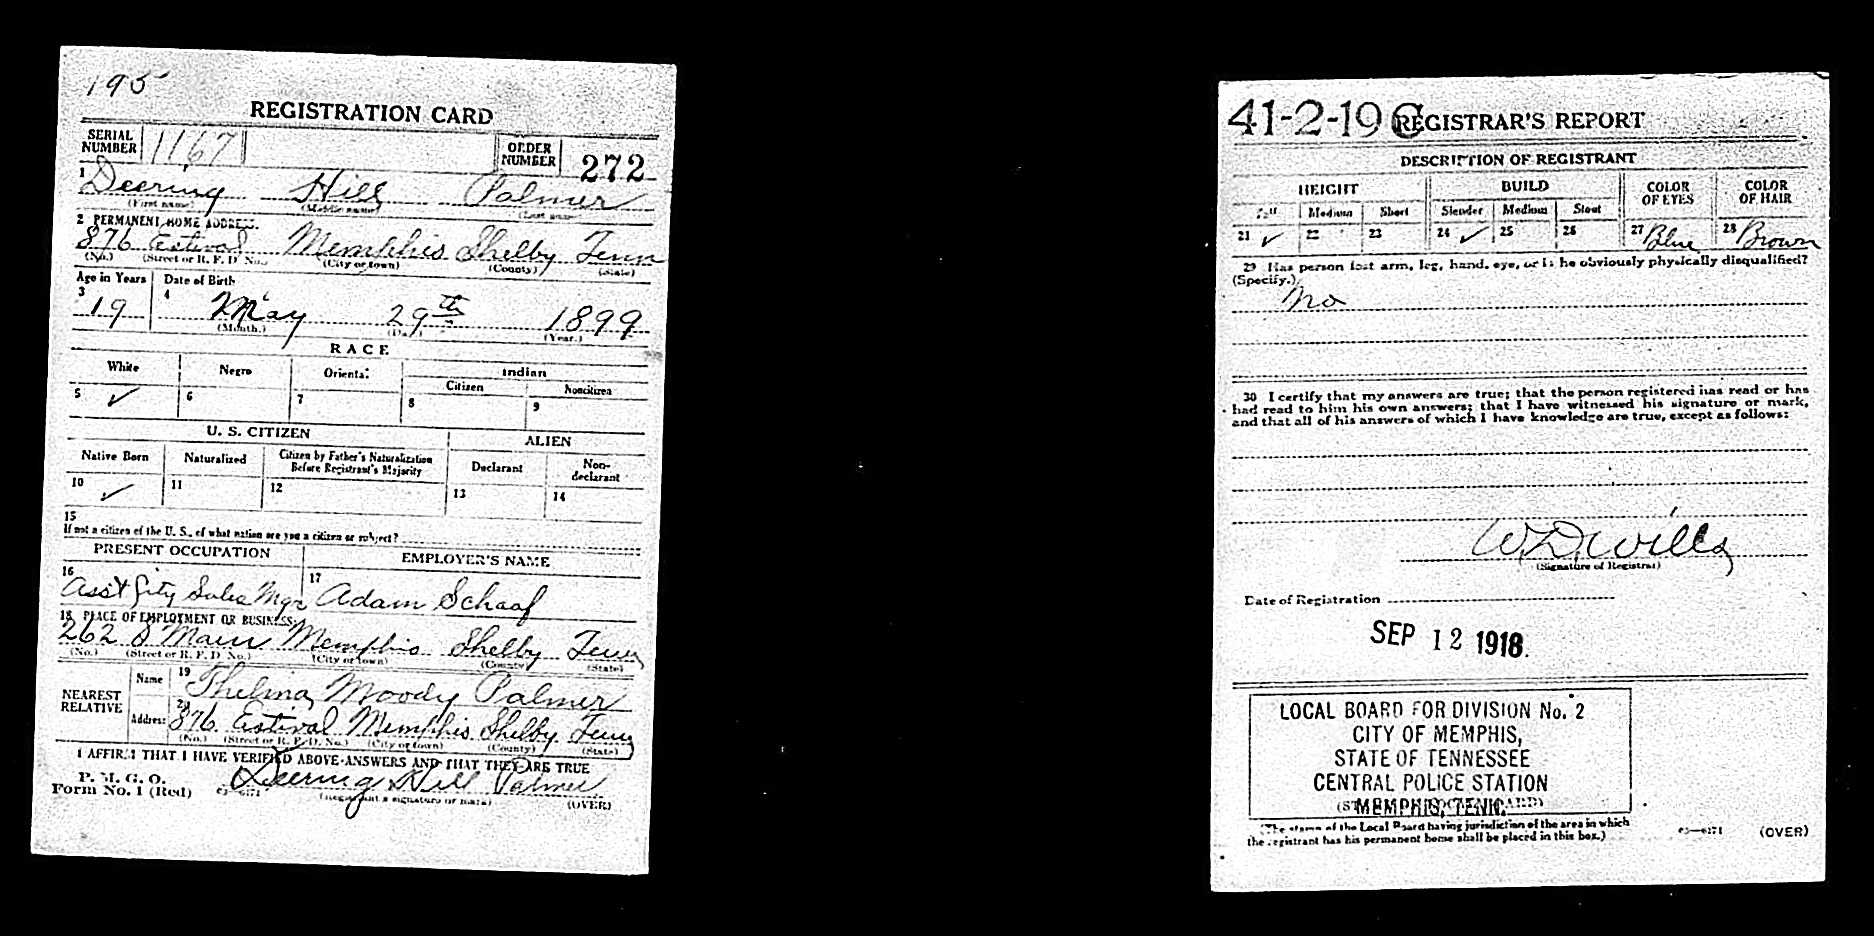 195
REGISTRATION CARD
SERIAL NUMBER 1167 ORDER NUMBER 272
1 Deering Hill Palmer
(First name) (Middle name) (Last name)
2 PERMANENT HOME ADDRESS:
876 Estival Memphis Shelby Tenn
(No.) (Street or R. F. D. No.) (City or town) (County) (State)
Age in Years Date of Birth
3 19 4 May 29th 1899
(Month.) (Day.) (Year.)
RACE
White Negro Oriental Indian
Citizen Noncitizen
5 ✓ 6 7 8 9
U. S. CITIZEN ALIEN
Native Born Naturalized Citizen by Father's Naturalization Before Registrant's Majority Declarant Non-declarant
10 ✓ 11 12 13 14
15
If not a citizen of the U. S., of what nation are you a citizen or subject?
PRESENT OCCUPATION EMPLOYER'S NAME
16 Ass't City Sales Mgr 17 Adam Schaaf
18 PLACE OF EMPLOYMENT OR BUSINESS:
262 S Main Memphis Shelby Tenn
(No.) (Street or R. F. D. No.) (City or town) (County) (State)
NEAREST RELATIVE Name 19 Thelma Moody Palmer
Address 20 876 Estival Memphis Shelby Tenn
(No.) (Street or R. F. D. No.) (City or town) (County) (State)
I AFFIRM THAT I HAVE VERIFIED ABOVE ANSWERS AND THAT THEY ARE TRUE
P. M. G. O.
Form No. 1 (Red) Deering Hill Palmer
(Registrant's signature or mark) (OVER)
41-2-19 C REGISTRAR'S REPORT
DESCRIPTION OF REGISTRANT
HEIGHT BUILD COLOR OF EYES COLOR OF HAIR
Tall Medium Short Slender Medium Stout
21 ✓ 22 23 24 ✓ 25 26 27 Blue 28 Brown
29 Has person lost arm, leg, hand, eye, or is he obviously physically disqualified?
(Specify.) No
30 I certify that my answers are true; that the person registered has read or has
had read to him his own answers; that I have witnessed his signature or mark,
and that all of his answers of which I have knowledge are true, except as follows:
W. D. Wills
(Signature of Registrar)
Date of Registration
SEP 12 1918.
LOCAL BOARD FOR DIVISION No. 2
CITY OF MEMPHIS,
STATE OF TENNESSEE
CENTRAL POLICE STATION
MEMPHIS, TENN.
(The stamp of the Local Board having jurisdiction of the area in which
the registrant has his permanent home shall be placed in this box.)
03—6171 (OVER)